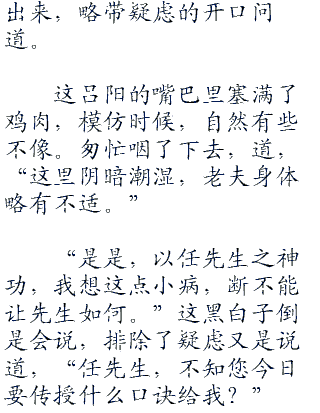 出来，略带疑虑的开口问
道。
这吕阳的嘴巴里塞满了
鸡肉，模仿时候，自然有些
不像。匆忙咽了下去，道，
“这里阴暗潮湿，老夫身体
略有不适。”
“是是，以任先生之神
功，我想这点小病，断不能
让先生如何。”这黑白子倒
是会说，排除了疑虑又是说
道，“任先生，不知您今日
要传授什么口诀给我？”